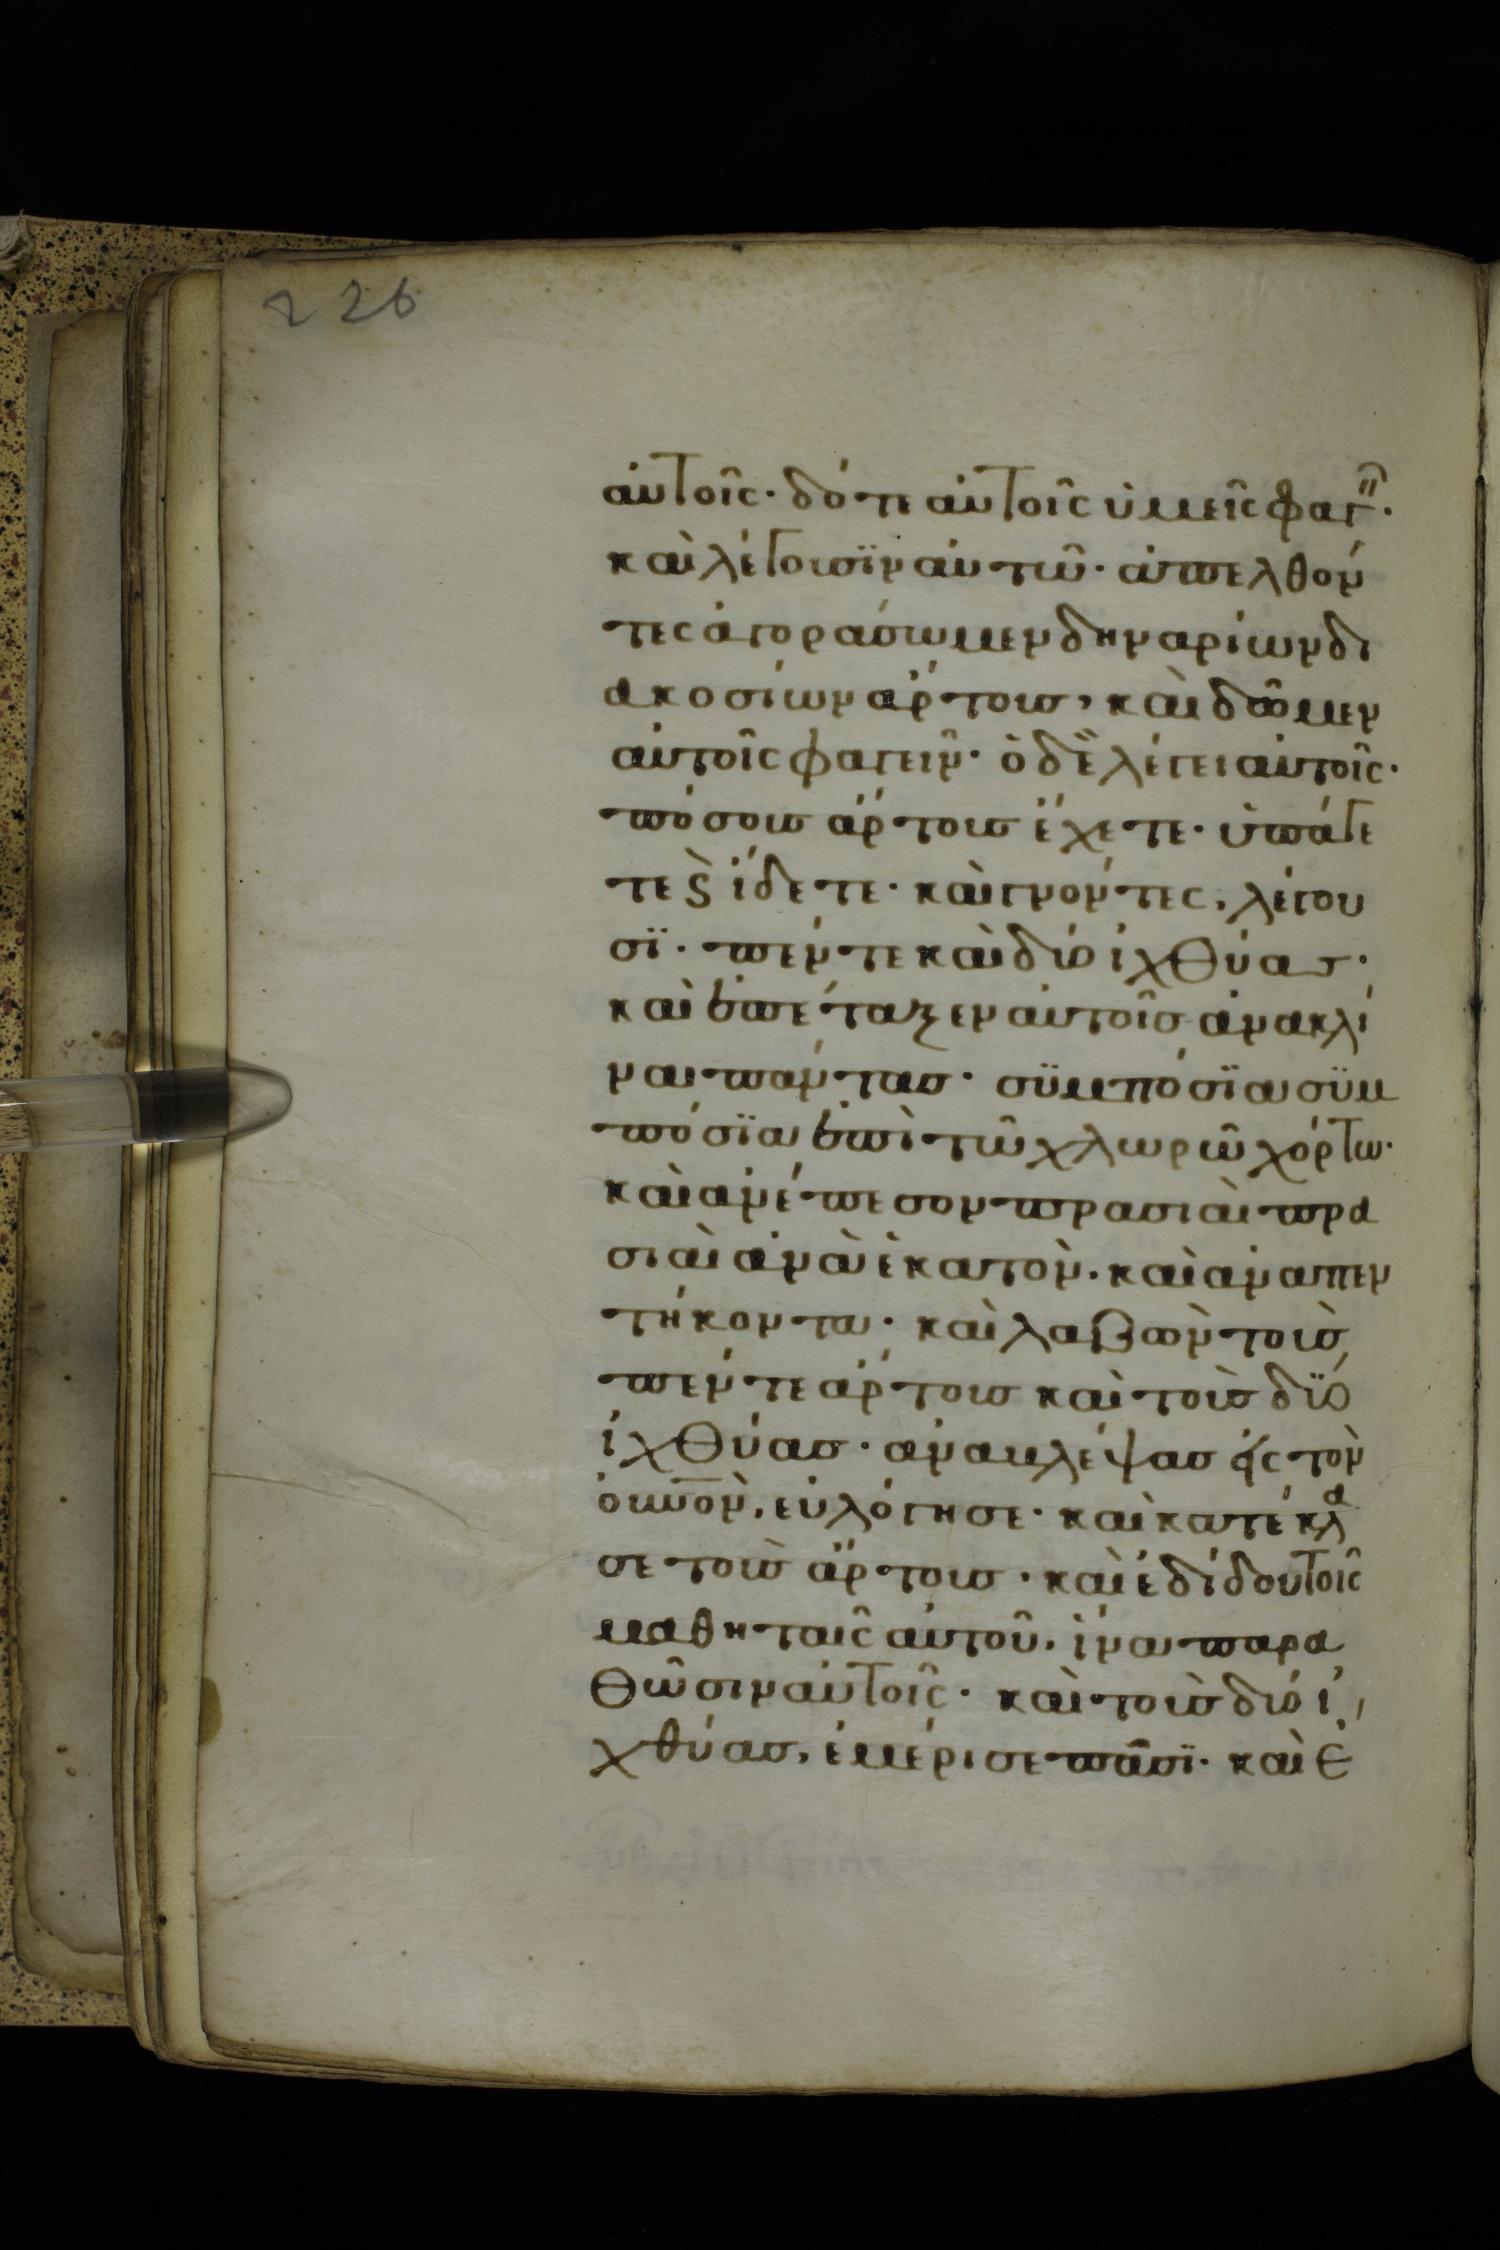 226
αὐτοῖς· δότε αὐτοῖς ὑμεῖς φαγ῀·
καὶ λέγουσϊν αὐτῶ· ἀπελθόν
τες ἀγοράσωμεν δηναρίων δι
ακοσίων ἄρτους, καὶ δῶμεν
αὐτοῖς φαγεῖν· ὁ δὲ λέγει αὐτοῖς·
πόσους ἄρτους ἔχετε· ὑπάγε
τε ϗ ἴδετε· καὶ γνόντες, λέγου
σϊ· πέντε καὶ δύο ἰχθύας·
καὶ ἐπέταξεν αὐτοῖς ἀνακλί
ναι πάντας· συμπόσϊα συμ
πόσϊα ἐπὶ τῶ χλωρῶ χόρτω·
καὶ ἀνέπεσον πρασιαὶ πρα
σιαὶ ἀνὰ ἑκατὸν. καὶ ἀνα πεν
τήκοντα· καὶ λαβὼν τοὺς
πέντε ἄρτους καὶ τοὺς δύο
ἰχθύας· ἀναβλέψας εἰς τὸν
οὐνὸν, εὐλόγησε· καὶ κατέκλα
σε τοὺς ἄρτους· καὶ ἐδίδου τοῖς
μαθηταῖς αὐτοῦ, ἵνα παρα
θῶσιν αὐτοῖς· καὶ τοὺς δύο ἰ
χθύας, ἐμέρισε πᾶσϊ· καὶ ἔ